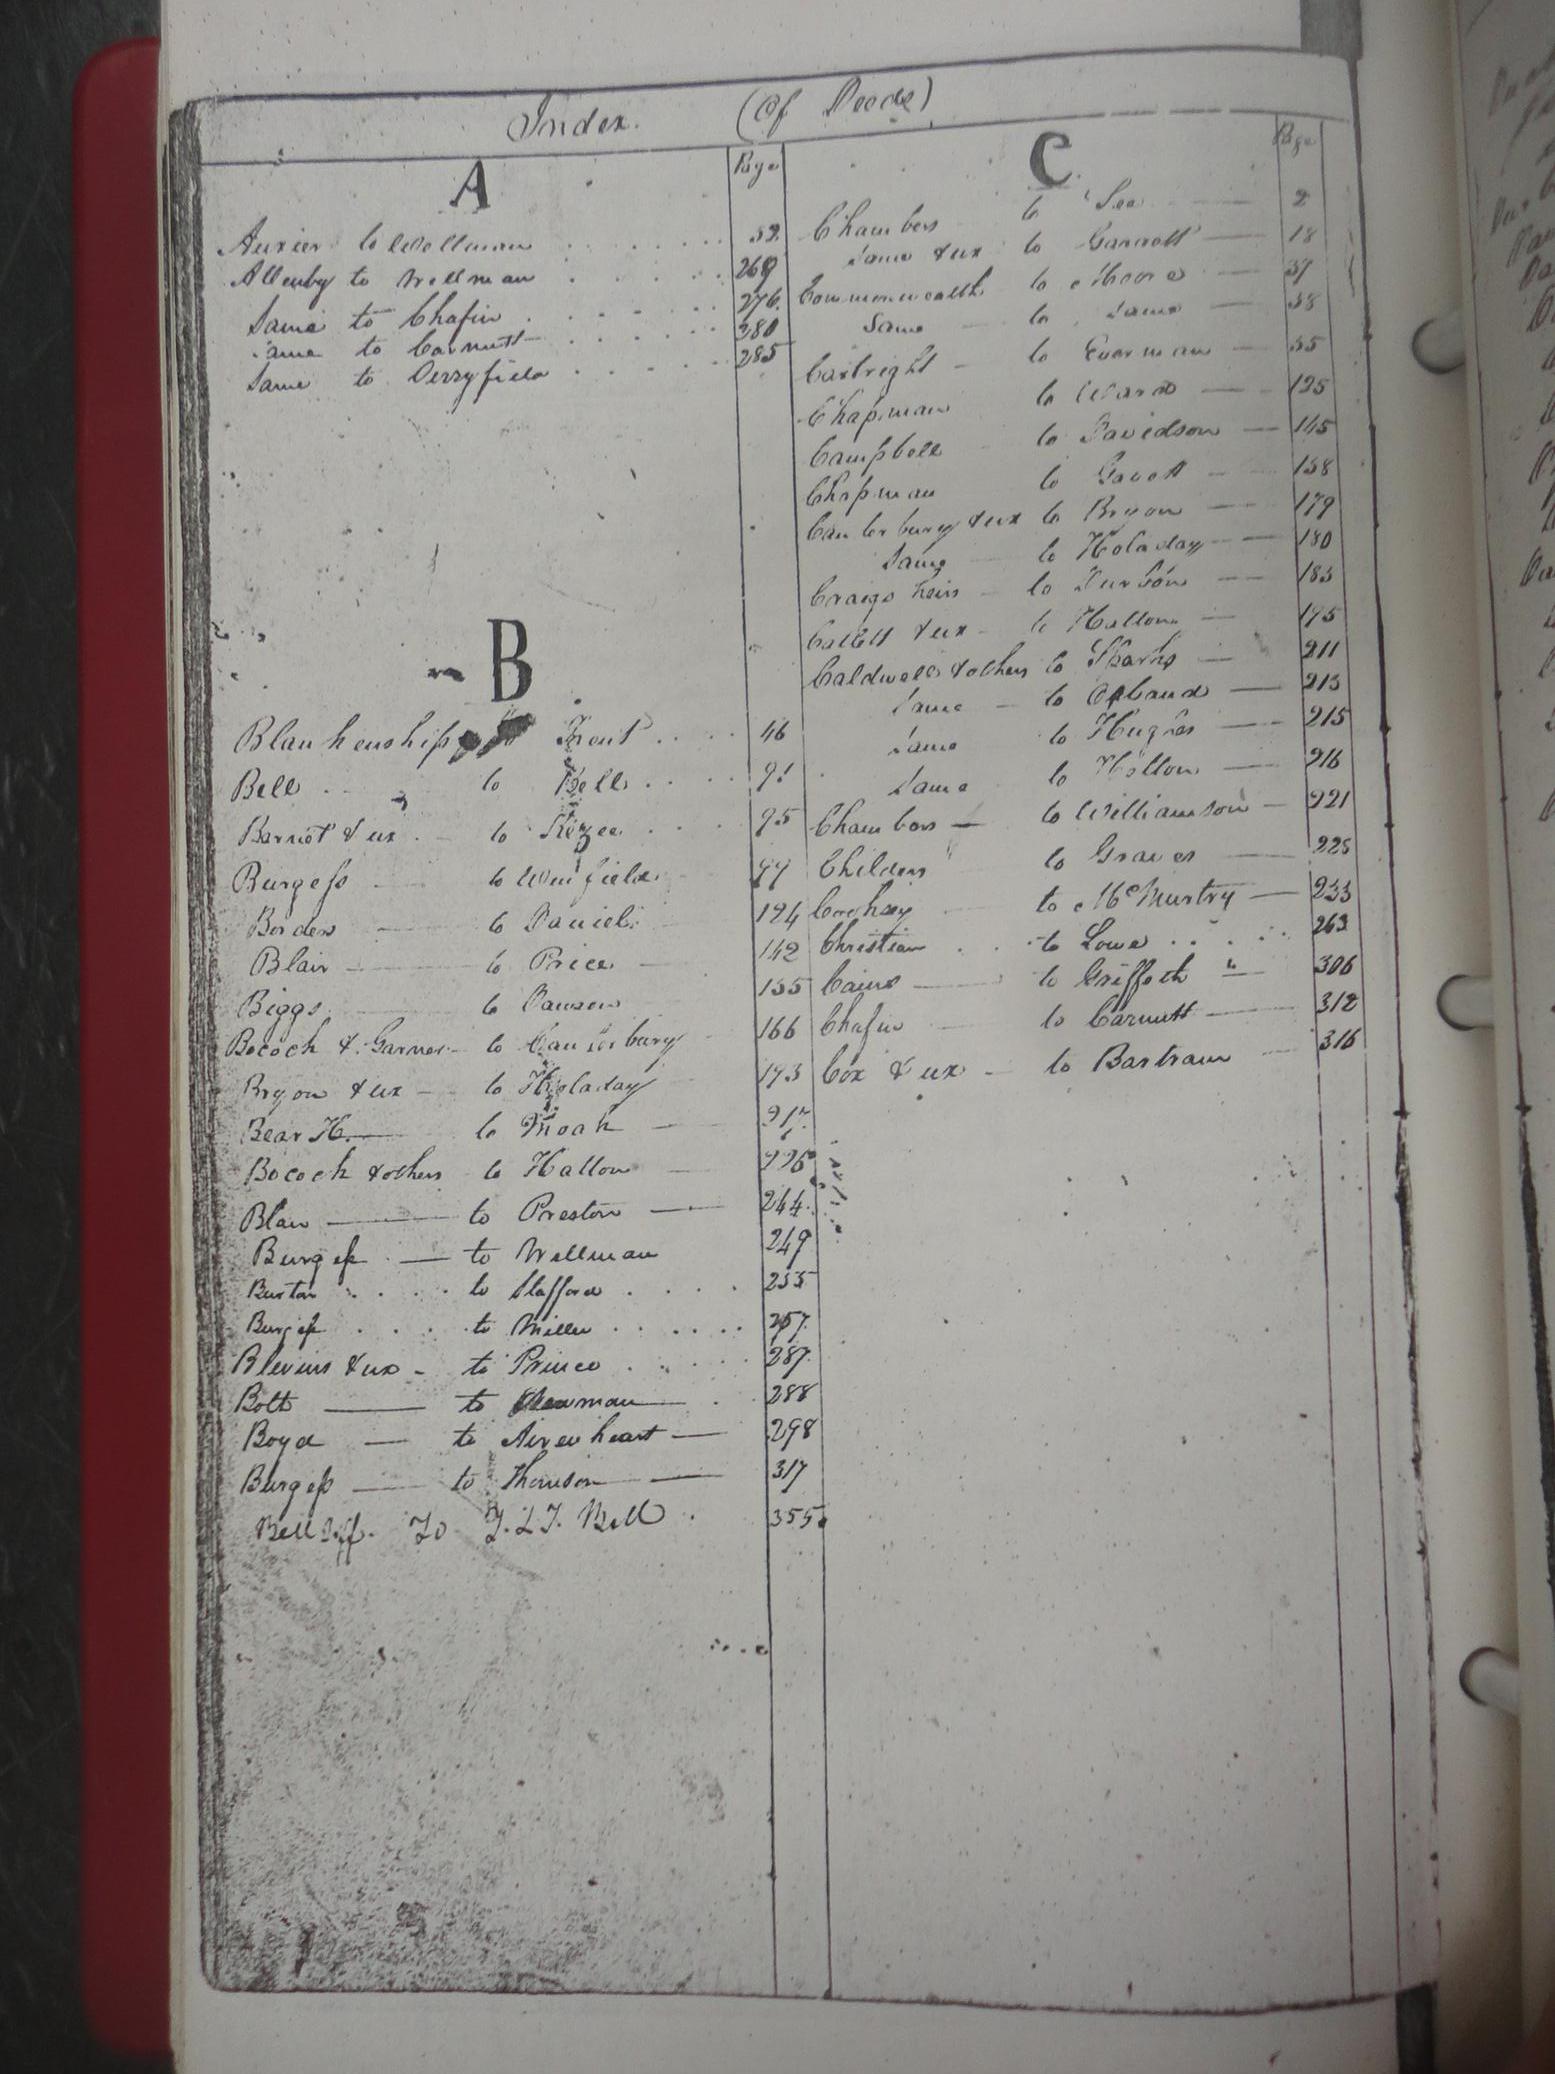 Index. (Of Deeds)
A
Page
Auxier to Wellman 52
Allenby to Wellman 269
Same to Chafin 276
Same to Carnutt 280
Same to Derryfield 285
B
Blankenship to Frout 46
Bell to Bell 91
Barnot & ux to Kezee 95
Burgess to Winfield 99
Borders to Daniel 124
Blair to Price 142
Biggs to Dawson 155
Bocock & Garner to Canterbury 166
Bryon & ux to Holaday 173
Bear H. to Moak
Bocock & others to Hatton 226
Blair to Preston 244
Burgess to Wellman 249
Burton to Stafford 255
Burgess to Miller 257
Blevins & ux to Prince 287
Bolt to Newman 288
Boyd to Airenheart 298
Burgess to Thomson 317
Bell To Bell 355
C
Page
Chambers to See 2
Same & ux to Garrott 18
Commonwealth to Moore 37
Same to Same 38
Cartright to Everman 55
Chapman to Ward 125
Campbell to Davidson 145
Chapman to Gavett 158
Canterbury & ux to Bryon 179
Same to Holaday 180
Craigs heirs to Turbon 183
Catlett & ux to Hatton 195
Caldwell & others to Sparks 211
Same to 213
Same to Hughes 215
Same to Hatton 216
Chambers to Williamson 221
Childers to Graves 225
Cooksey to McMurtry 233
Christian to Lowe 263
Cains to Griffeth " 306
Chafin to Carnutt 312
Cox & ux to Bartram 316